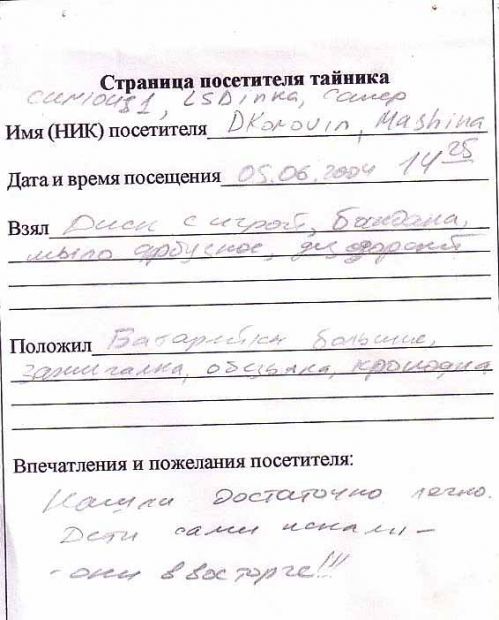 Страница посетителя тайника
curious1, LSDinka, Сапер
Имя (НИК) посетителя DKorovin, Mashina
Дата и время посещения 05.06.2004 14 25
Взял Диск с игрой, Бандана,
мыло арбузное, дезодорант
Положил Батарейки большие,
зажигалка, обезьяна, крокодил
Впечатления и пожелания посетителя:
Нашли достаточно легко.
Дети сами искали –
- они в восторге!!!